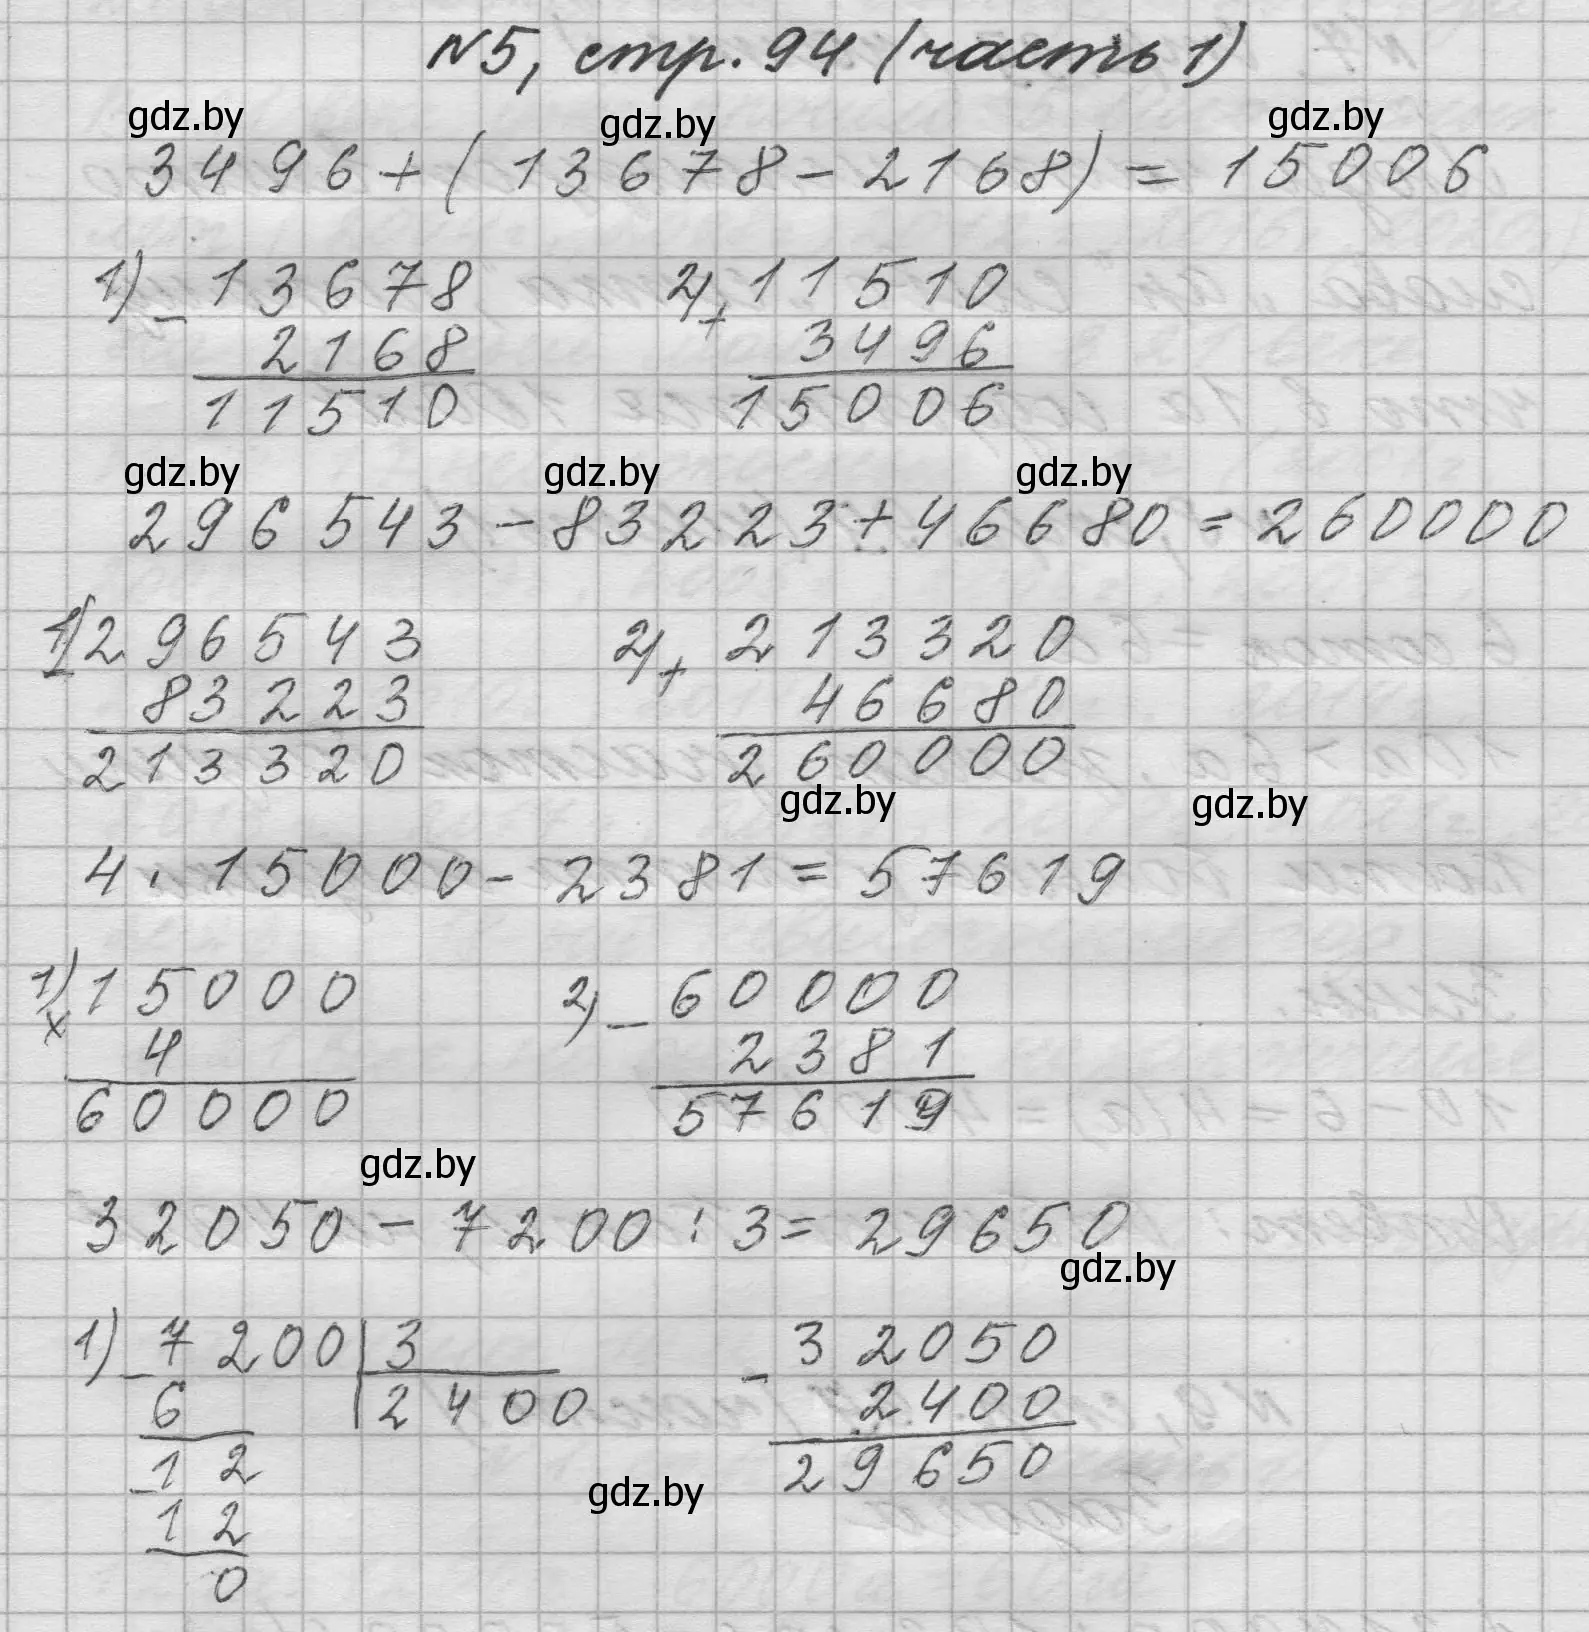 №5, стр. 94 (часть 1)
gdz.by gdz.by gdz.by
3496+(13678-2168)=15006
1) - 13678 2) + 11510
2168 3496
11510 15006
gdz.by gdz.by gdz.by
296543-83223+46680=260000
1) - 296543 2) + 213320
83223 46680
213320 260000
gdz.by gdz.by
4·15000-2381=57619
1) × 15000 2) - 60000
4 2381
60000 57619
gdz.by
32050-7200:3=29650
gdz.by
1) - 7200 3 - 32050
6 2400 2400
- 12 29650
gdz.by
12
0